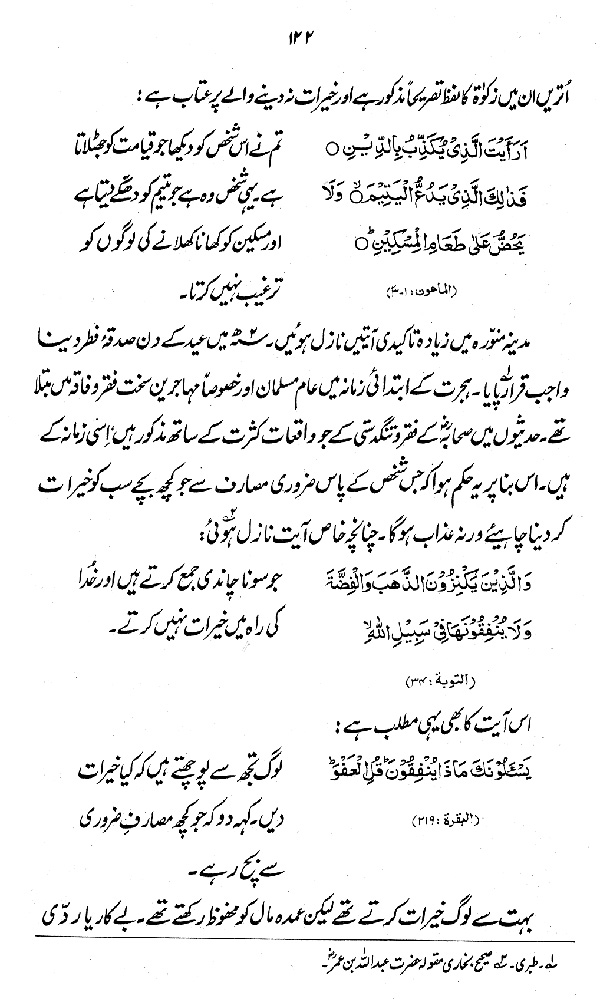 ۱۲۲
اُتریں ان میں زکوٰۃ کا لفظ تصریحاً مذکور ہے اور خیرات نہ دینے والے پر عتاب ہے :
اَرَاَیْتَ الَّذِیْ یُکَذِّبُ بِالدِّیْنِ ○
فَذٰلِکَ الَّذِیْ یَدُعُّ الْیَتِیْمَ ۙ وَلَا
یَحُضُّ عَلٰی طَعَامِ الْمِسْکِیْنِ ؕ
(الماعون : ۱-۳)
تم نے اس شخص کو دیکھا جو قیامت کو جھٹلاتا
ہے۔ یہی شخص وہ ہے جو یتیم کو دھکے دیتا ہے
اور مسکین کو کھانا کھلانے کی لوگوں کو
ترغیب نہیں کرتا۔
مدینہ منوّرہ میں زیادہ تاکیدی آیتیں نازل ہوئیں۔ ۲ھ میں عید کے دن صدقۂ فطر دینا
واجب قرار پایا۱۔ ہجرت کے ابتدائی زمانہ میں عام مسلمان اور خصوصاً مہاجرین سخت فقر و فاقہ میں مبتلا
تھے۔ حدیثوں میں صحابہؓ کے فقر و تنگدستی کے جو واقعات کثرت کے ساتھ مذکور ہیں اِسی زمانہ کے
ہیں۔ اس بنا پر یہ حکم ہوا کہ جس شخص کے پاس ضروری مصارف سے جو کچھ بچے سب کو خیرات
کر دینا چاہیئے ورنہ عذاب ہوگا۔ چنانچہ خاص آیت نازل ہوئی۲:
وَالَّذِیْنَ یَکْنِزُوْنَ الذَّھَبَ وَالْفِضَّۃَ
وَلَا یُنْفِقُوْنَھَا فِیْ سَبِیْلِ اللّٰہِ ۙ
(التوبۃ : ۳۴)
جو سونا چاندی جمع کرتے ہیں اور خُدا
کی راہ میں خیرات نہیں کرتے۔
اس آیت کا بھی یہی مطلب ہے :
یَسْـَٔلُوْنَکَ مَاذَا یُنْفِقُوْنَ ؕ قُلِ الْعَفْوَ ؕ
(البقرۃ : ۲۱۹)
لوگ تجھ سے پوچھتے ہیں کہ کیا خیرات
دیں۔ کہہ دو کہ جو کچھ مصارفِ ضروری
سے بچ رہے۔
بہت سے لوگ خیرات کرتے تھے لیکن عمدہ مال کو محفوظ رکھتے تھے۔ بے کار یا ردّی
۱۔ طبری۔ ۲۔ صحیح بخاری مقولہ حضرت عبداللہ بن عمرؓ۔